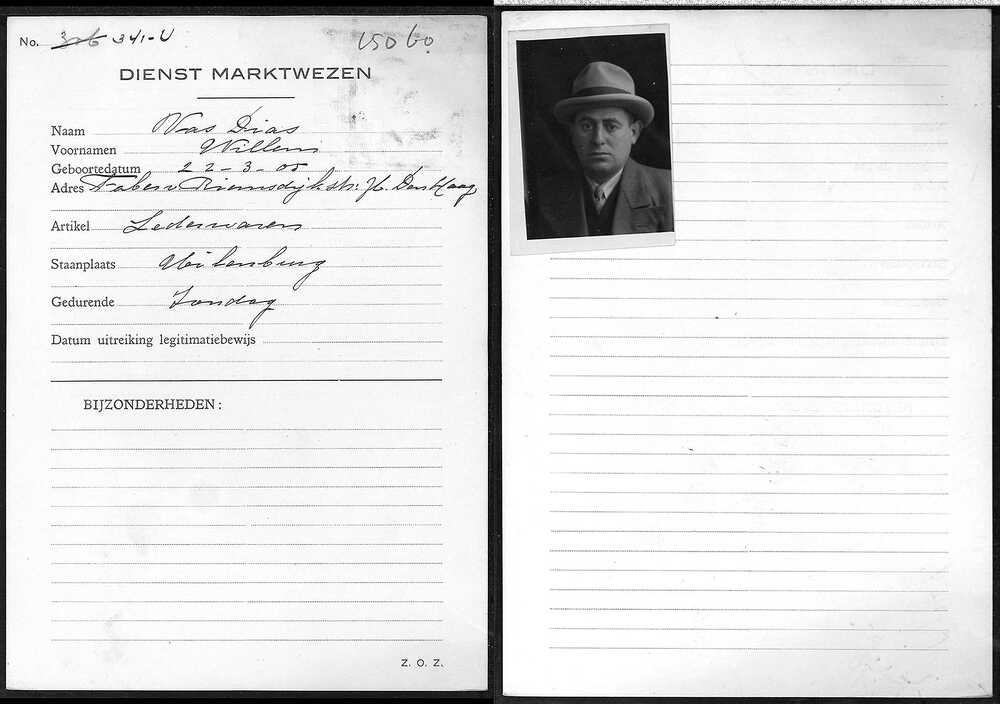 No. 326 341-U 15060
DIENST MARKTWEZEN
Naam Vas Dias
Voornamen Willem
Geboortedatum 22-3-05
Adres Faber v Riemsdijkstr. Den Haag
Artikel Lederwaren
Staanplaats Uilenburg
Gedurende Zondag
Datum uitreiking legitimatiebewijs
BIJZONDERHEDEN:
Z. O. Z.